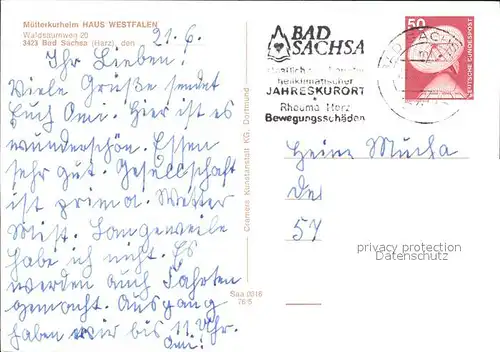 Mütterkurheim HAUS WESTFALEN
Waldsaumweg 20
3423 Bad Sachsa (Harz), den 21. 6.
Ihr Lieben!
Viele Grüße sendet
Euch Omi. Hier ist es
wunderschön. Essen
sehr gut. Gesellschaft
ist prima. Wetter
Mist. Langeweile
habe ich nicht. Es
werden auch Fahrten
gemacht. Ausgang
haben wir bis 11 Uhr.
Omi!
Cramers Kunstanstalt KG, Dortmund
Saa 0316
76 5
BAD
SACHSA
heilklimatischer
JAHRESKURORT
Rheuma Herz
Bewegungsschäden
50
DEUTSCHE BUNDESPOST
Heinz Mucha
54
privacy protection
www.ansichtskartenversand.com